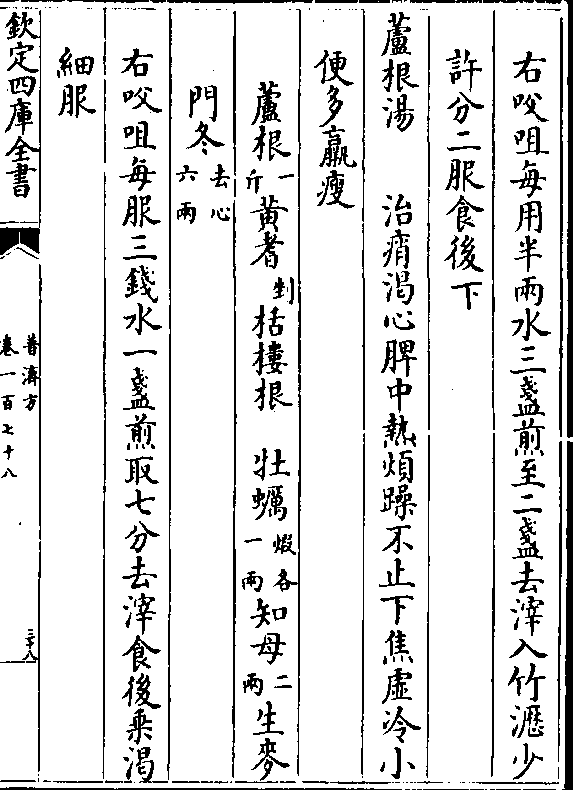 右㕮咀每用半兩水三盞煎至二盞去滓入竹瀝少
許分二服食後下
蘆根湯　治痟渴心脾中熱煩躁不止下焦虛冷小
便多羸瘦
蘆根一斤黃耆剉栝樓根　牡蠣煆各一兩知母二兩生麥
門冬去心六兩
右㕮咀每服三錢水一盞煎取七分去滓食後乘渴
細服
欽定四庫全書
普濟方
卷一百七十八
三十八